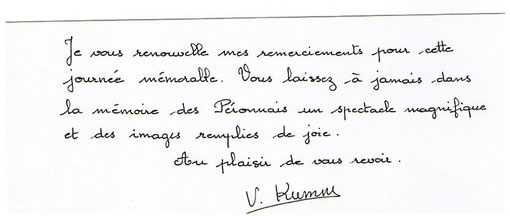 Je vous renouvelle mes remerciements pour cette
journée mémorable. Vous laissez à jamais dans
la mémoire des Péronnais un spectacle magnifique
et des images remplies de joie.
Au plaisir de vous revoir.
V. Kumm